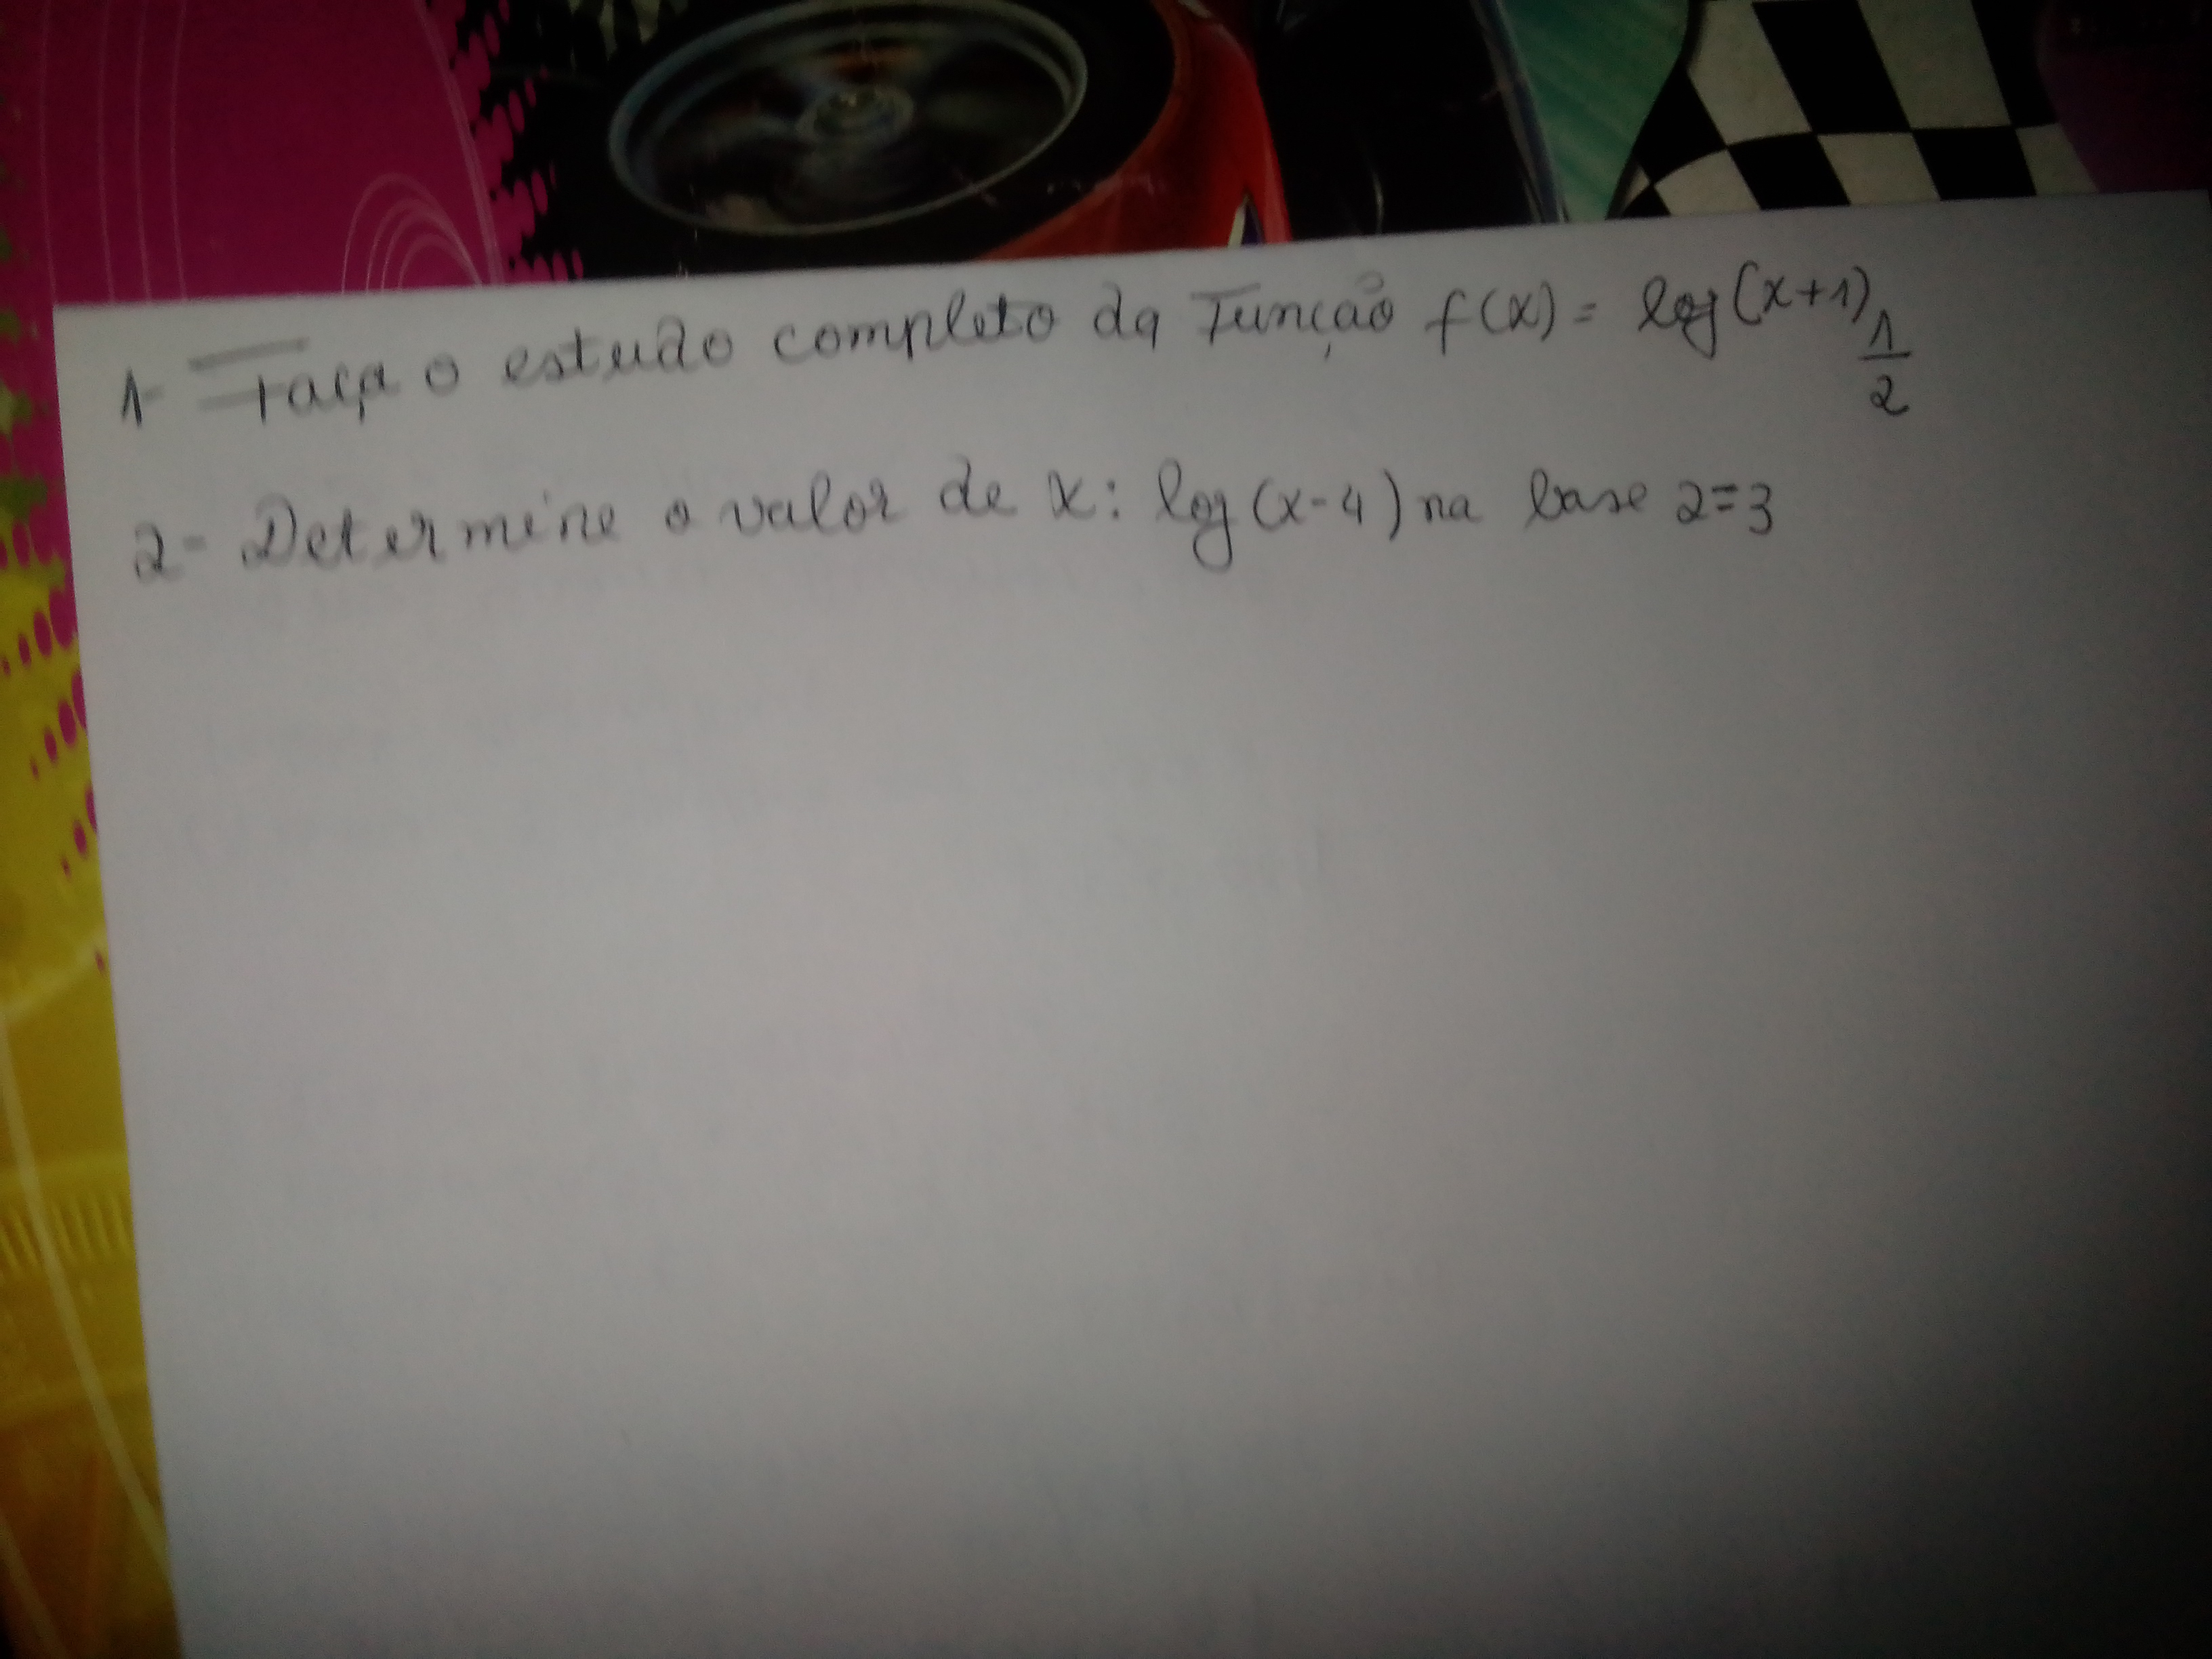 1- Faça o estudo completo da Função f(x) = log(x+1) 1/2
2- Determine o valor de x: log(x-4) na base 2=3